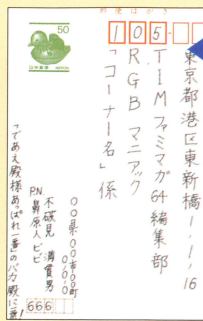 郵便はがき
50
日本郵便
NIPPON
105-
東京都港区東新橋1-1-16
TIMファミマガ64編集部
RGBマニアック
「コーナー名」係
〇〇県〇〇市〇〇町
〇-〇-〇
不破見 満貫男
P.N. 鼻原人ビビ
「であえ殿様あぱれ一番」のバカ殿に一票!
666